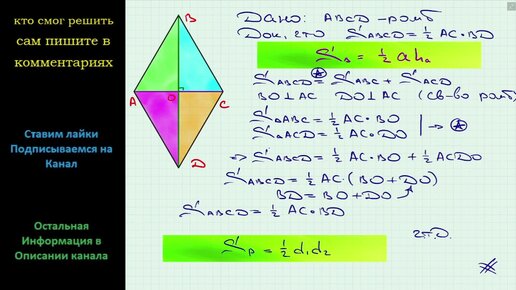 кто смог решить
сам пишите в
комментариях
Ставим лайки
Подписываемся на
Канал
Остальная
Информация в
Описании канала
B
A
O
C
D
Дано: ABCD - ромб
Док, что S ABCD = 1/2 AC · BD
S△ = 1/2 a hₐ
S ABCD =Ⓐ S ABC + S ACD
BO ⊥ AC DO ⊥ AC (св-во ромба)
S△ABC = 1/2 AC · BO
S△ACD = 1/2 AC · DO | → Ⓐ
⇒ S ABCD = 1/2 AC · BO + 1/2 AC DO
S ABCD = 1/2 AC · (BO + DO)
BD = BO + DO
S ABCD = 1/2 AC · BD
ч.т.д.
Sр = 1/2 d₁ d₂